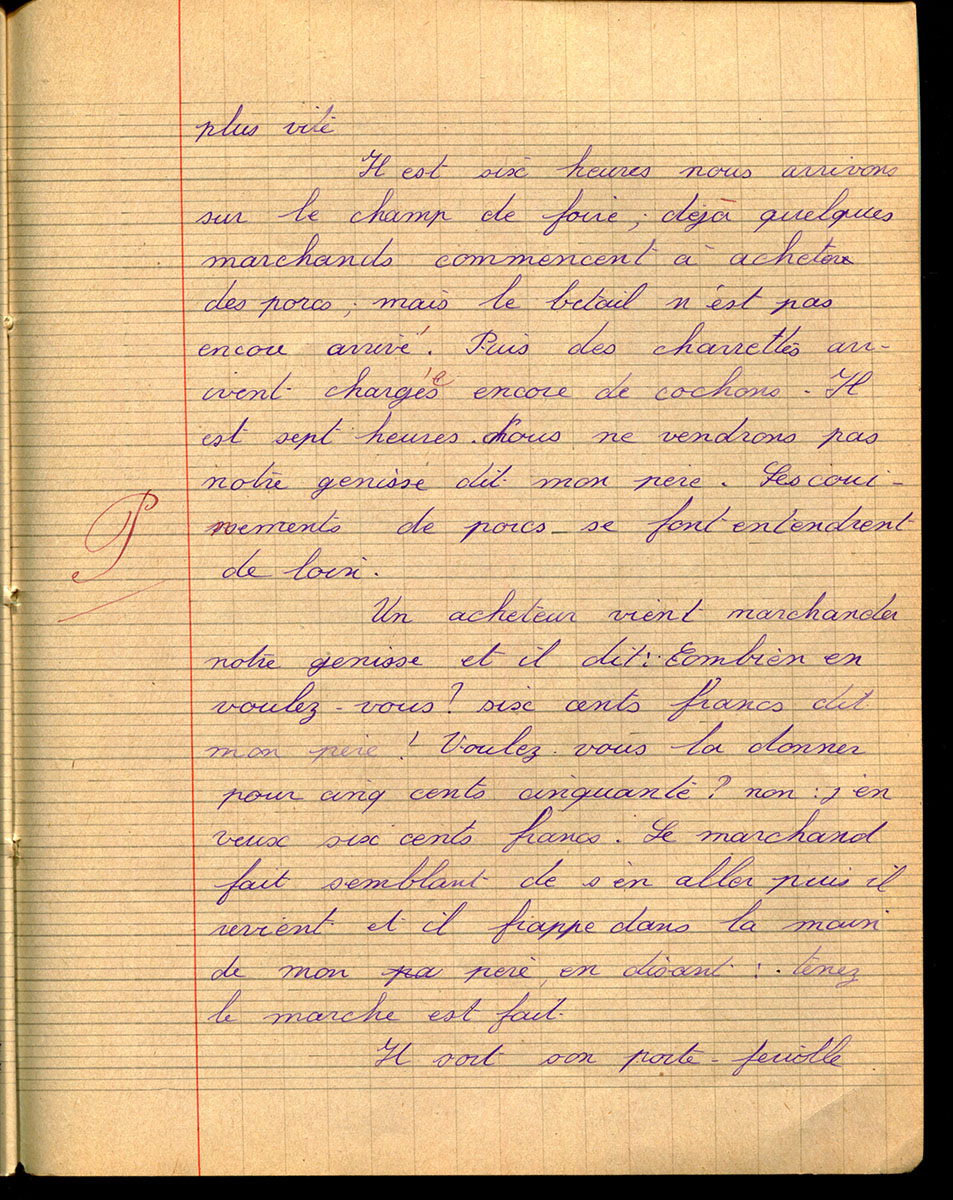 plus vite
Il est six heures nous arrivons
sur le champ de foire, déjà quelques
marchands commencent à acheter
des porcs; mais le betail n'est pas
encore arrivé. Puis des charrettes arr-
ivent chargées encore de cochons. Il
est sept heures. Nous ne vendrons pas
notre genisse dit mon père. Les coui-
nements de porcs se font entendrent
de loin.
P
Un acheteur vient marchander
notre genisse et il dit: Combien en
voulez-vous? six cents francs dit
mon père! Voulez vous la donner
pour cinq cents cinquante? non: j'en
veux six cents francs. Le marchand
fait semblant de s'en aller puis il
revient et il frappe dans la main
de mon pa père, en disant: tenez
le marche est fait.
Il sort son porte-feuille